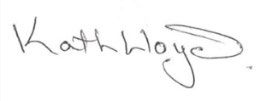 Kath Lloyd.